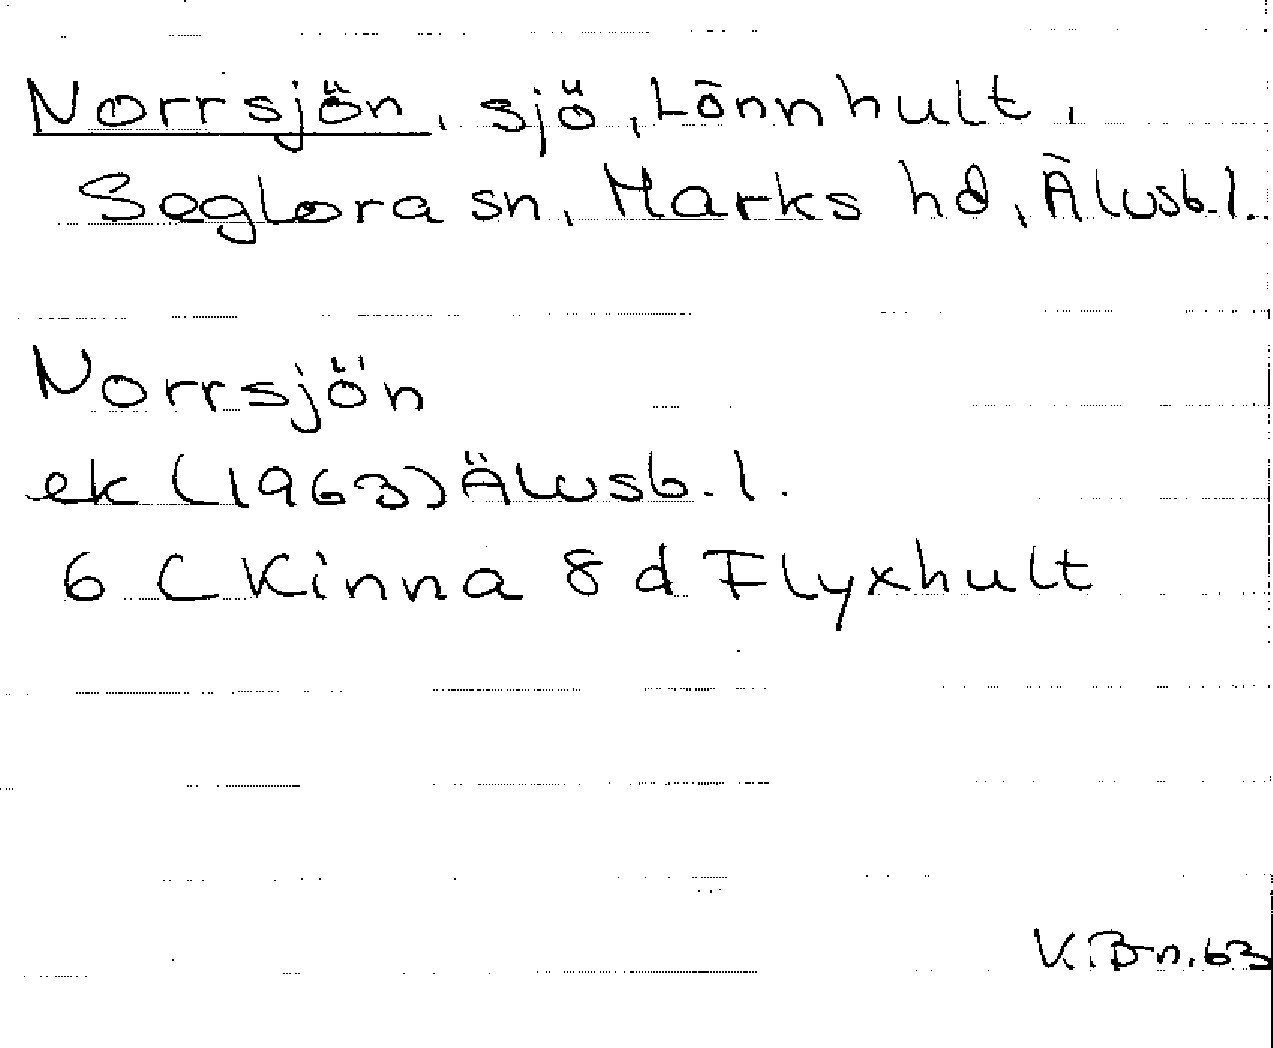 Norrsjön, sjö, Lönnhult,
Seglora sn, Marks hd, Älvsb. l.
Norrsjön
ek (1963) Älvsb. l.
6 C Kinna 8 d Flyxhult
V. Bn. 63